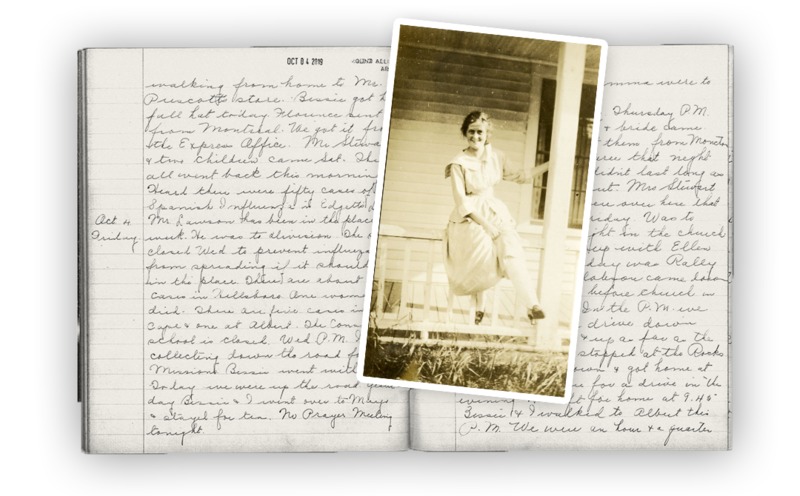 OCT 04 2019
walking from home to Mr.
Prescott store. Bessie got h
fall hat today. Florence sent
from Montreal. We got it fro
the Express Office. Mr Stewa
& two children came Sat. The
all went back this morning
Heard there were fifty cases of
Spanish Influenza in
Oct 4 Mr Lawson has been in the place
Friday week. He was to division. The
closed Wed to prevent influenz
from spreading if it should
in the place. There are about
cases in Hillsboro. One woma
died. There are five cases in
Cape & one at Albert. The Cons
school is closed. Wed P.M. I
collecting down the road fo
Missions Bessie went with
Today we were up the road
day Bessie & I went over to
& stayed for tea. No Prayer Meeting
tonight.
mma were to
Thursday P.M.
& bride came
them from Moncton
that night
didnt last long as
Mrs Stewart
over here that
day. Was to
ght in the church
up with Ellen
day was Rally
came down
before church in
In the P.M. we
drive down
& up as far as the
stopped at the Rocks
& got home at
for a drive in the
evening. for home at 9.45
Bessie & I walked to Albert this
P.M. We were an hour & a quarter